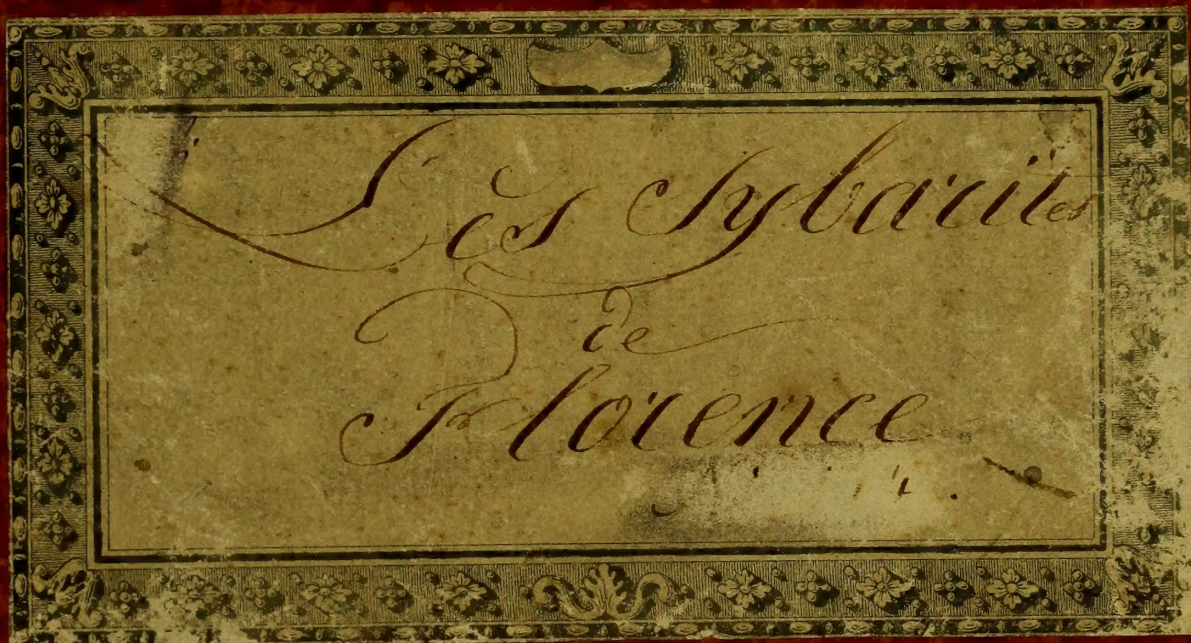 Les Sybarites
de
Florence